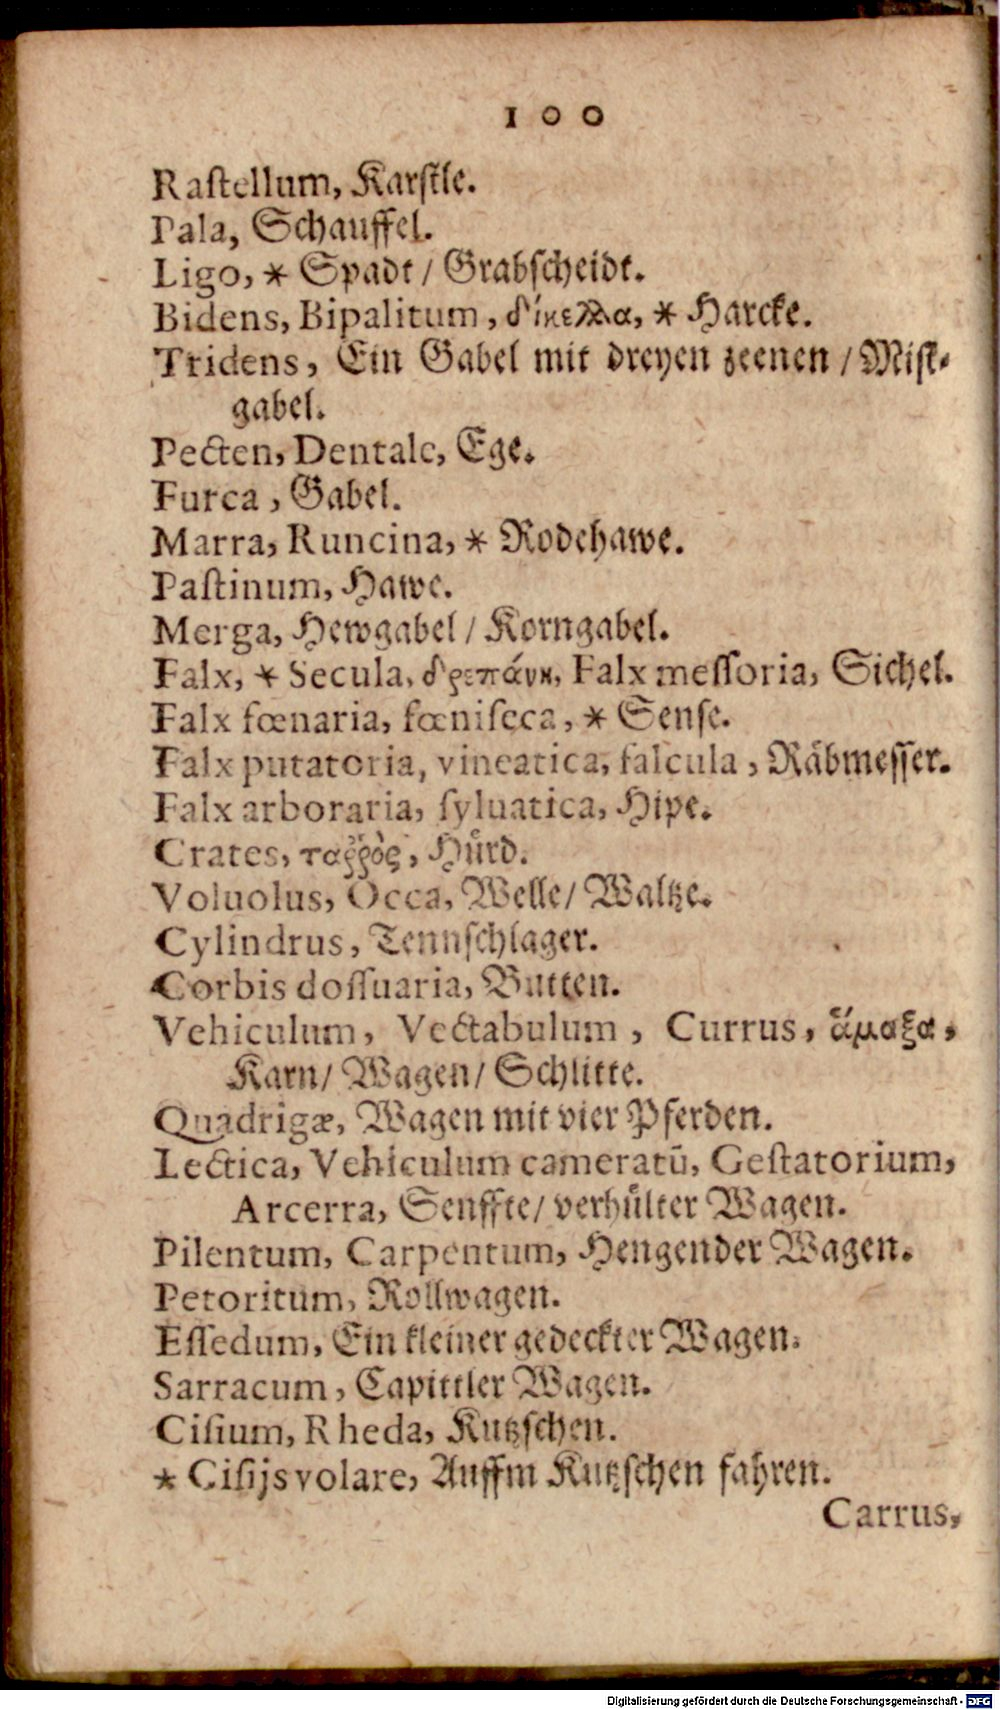 100
Rastellum, Karstle.
Pala, Schauffel.
Ligo, * Spadt / Grabscheidt.
Bidens, Bipalitum, δίκελλα, * Harcke.
Tridens, Ein Gabel mit dreyen zeenen / Mist-
gabel.
Pecten, Dentale, Ege.
Furca, Gabel.
Marra, Runcina, * Rodehawe.
Pastinum, Hawe.
Merga, Hewgabel / Korngabel.
Falx, * Secula, δρεπάνη, Falx messoria, Sichel.
Falx fœnaria, fœniseca, * Sense.
Falx putatoria, vineatica, falcula, Räbmesser.
Falx arboraria, syluatica, Hipe.
Crates, ταῤῥὸς, Hürd.
Voluolus, Occa, Welle / Waltze.
Cylindrus, Tennschlager.
Corbis dossuaria, Butten.
Vehiculum, Vectabulum, Currus, ἅμαξα,
Karn / Wagen / Schlitte.
Quadrigæ, Wagen mit vier Pferden.
Lectica, Vehiculum cameratū, Gestatorium,
Arcerra, Senffte / verhülter Wagen.
Pilentum, Carpentum, Hengender Wagen.
Petoritum, Rollwagen.
Essedum, Ein kleiner gedeckter Wagen.
Sarracum, Capittler Wagen.
Cisium, Rheda, Kutzschen.
* Cisijs volare, Auffm Kutzschen fahren.
Carrus,
Digitalisierung gefördert durch die Deutsche Forschungsgemeinschaft - DFG